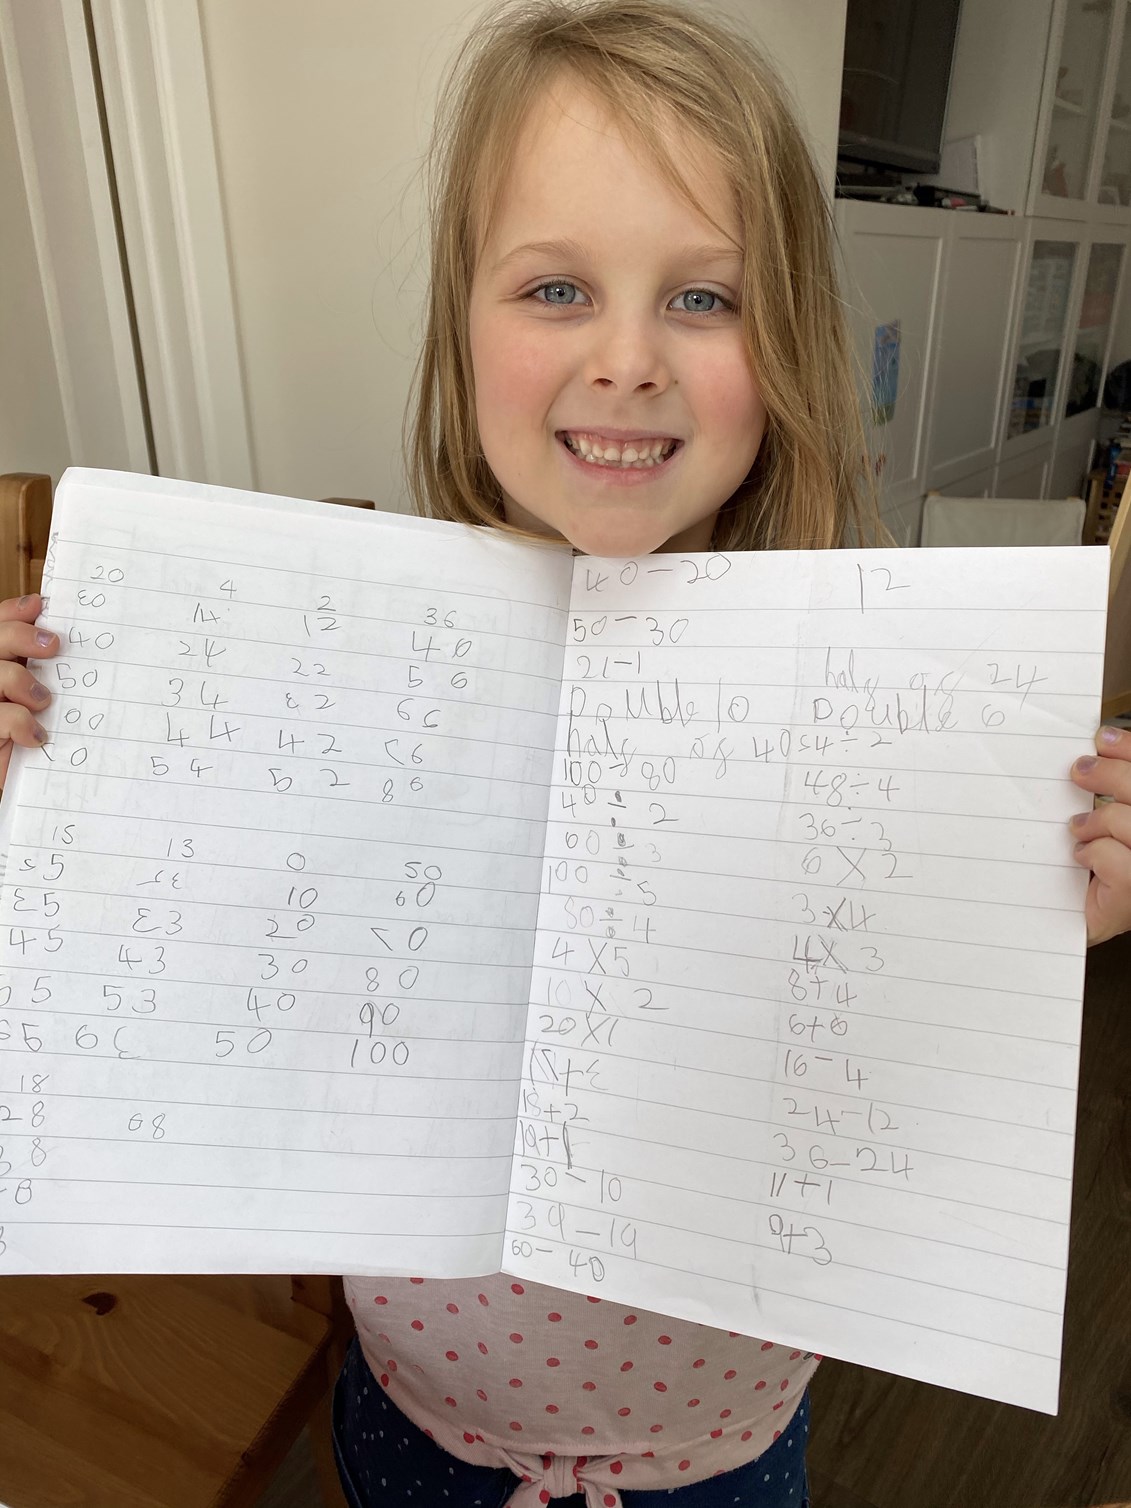 20 4 2 36
30 14 12 46
40 24 22 56
50 34 32 66
60 44 42 76
70 54 52 86
15 13 0 50
25 23 10 60
35 33 20 70
45 43 30 80
55 53 40 90
65 63 50 100
18
28 68
38
8
40-20
50-30
21-1
Double 10
half of 40
100-80
40÷2
60÷3
100÷5
80÷4
4X5
10X2
20X1
17+3
18+2
19+1
30-10
39-19
60-40
12
half of 24
Double 6
54÷2
48÷4
36÷3
6X2
3X4
4X3
8+4
6+6
16-4
24-12
36-24
11+1
9+3